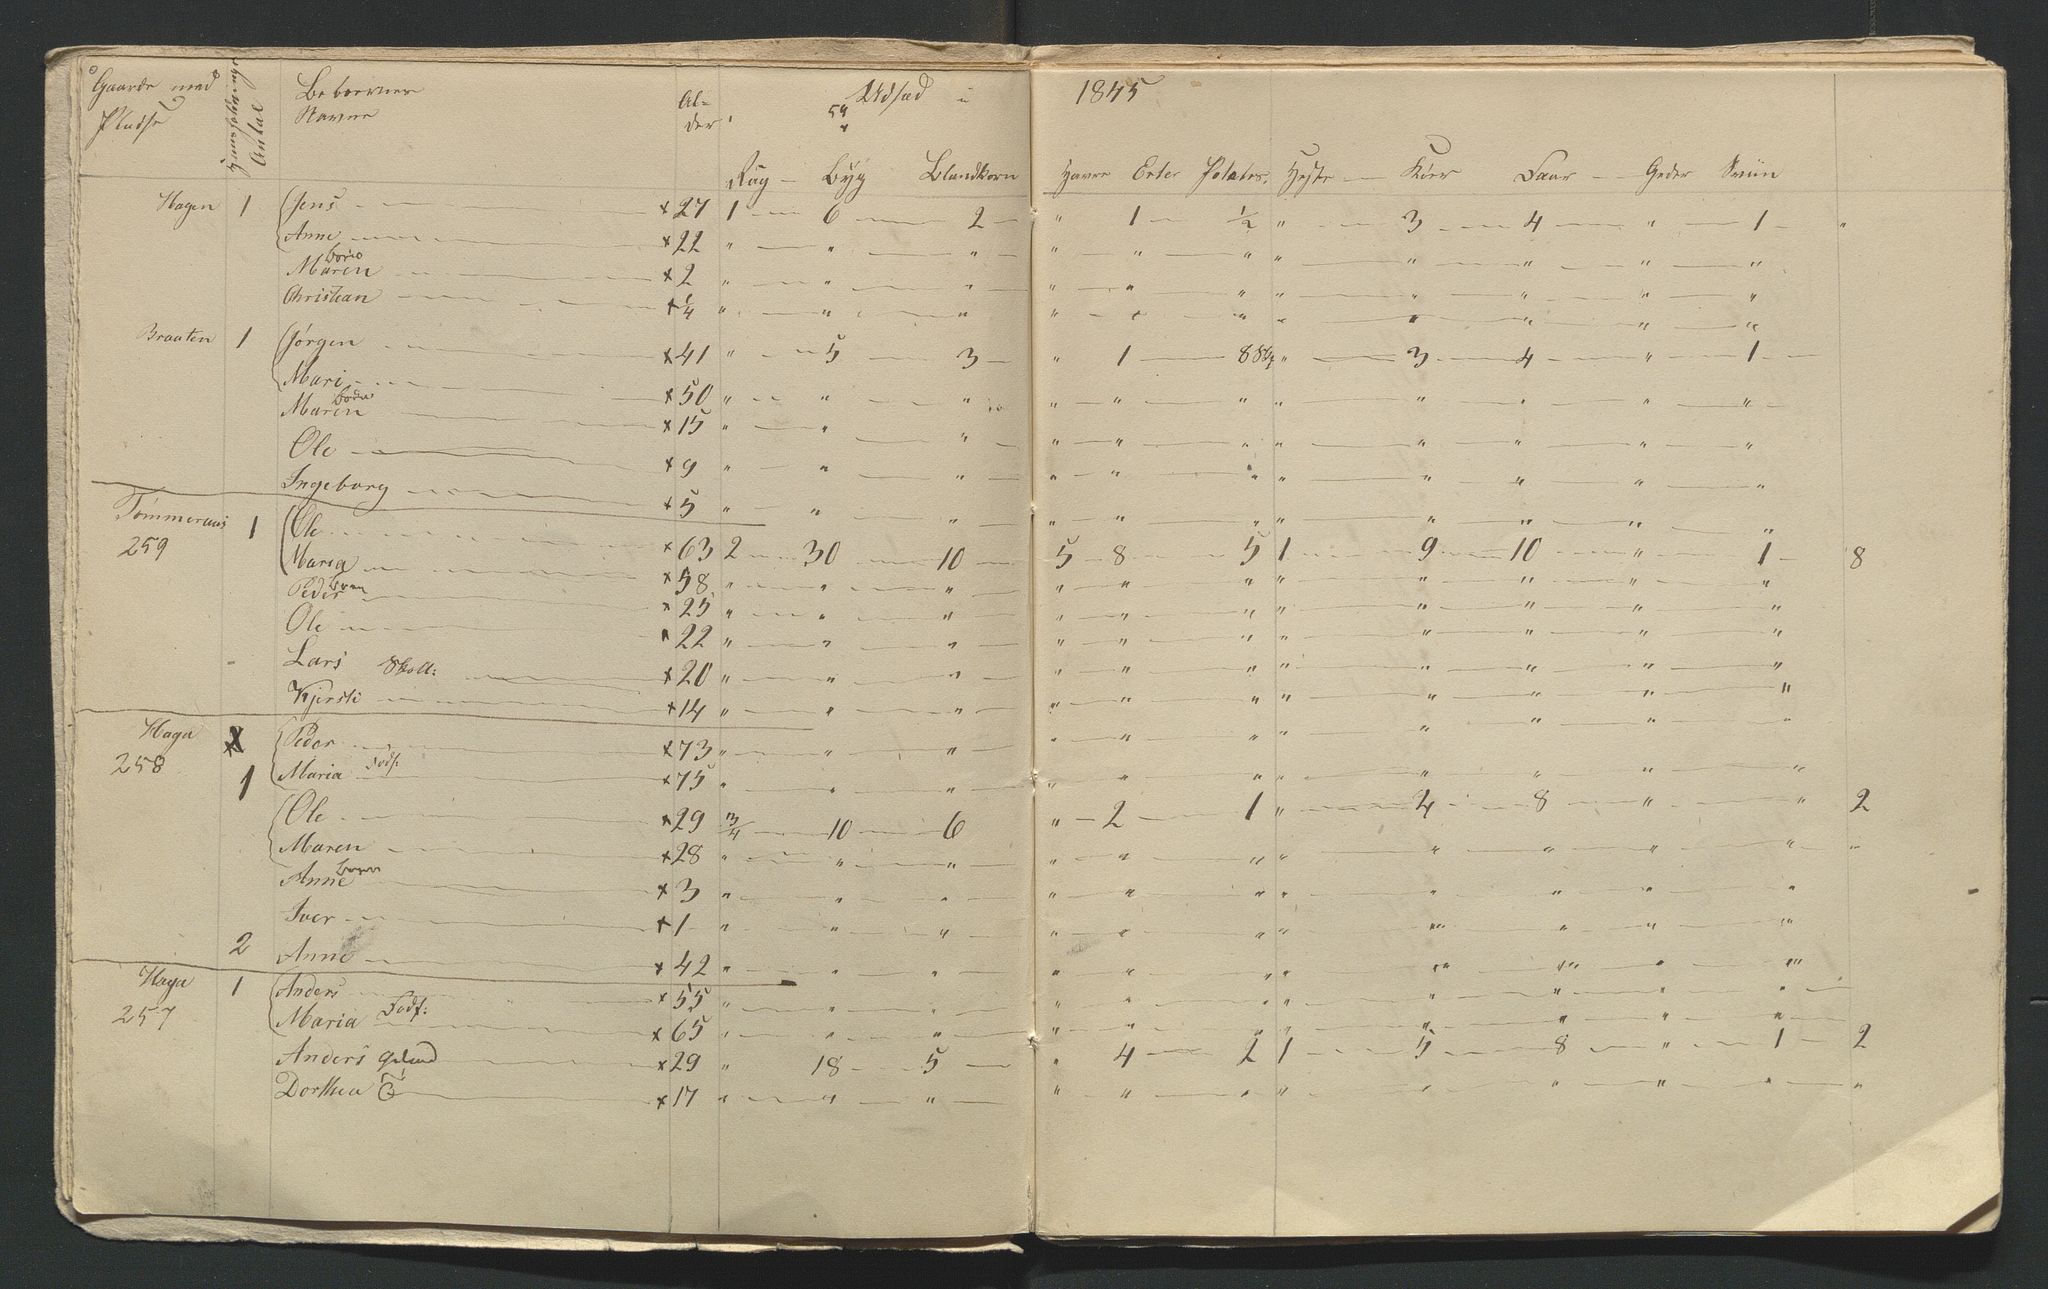 Gaarde med Pladse Huusholdninger Antal Beboernes Navne Al-der Udsæd i 1845
Rug Byg Blandkorn Havre Erter Potates Heste Kiør Faar Geder Sviin
Hagen 1 Jens x 27 1 6 2 " 1 1/2 " 3 4 " 1 "
Anne x 22 " " " " " " " " " " "
Børn
Maren x 2 " " " " " " " " " " "
Christian x 1/4 " " " " " " " " " " "
Braaten 1 Jørgen x 41 " 5 3 " 1 8 Sk " 3 4 " 1
Mari x 50 " " " " " " " " " " "
Børn
Maren x 15 " " " " " " " " " " "
Ole x 9 " " " " " " " " " " "
Ingeborg x 5 " " " " " " " " " " "
Tømmeraas 1 Ole x 63 2 30 10 5 8 5 1 9 10 " 1 8
259 Maria x 58 " " " " " " " " " " "
Børn
Peder x 25 " " " " " " " " " " "
Ole x 22 " " " " " " " " " " "
Lars Skoll: x 20 " " " " " " " " " " "
Kjersti x 14 " " " " " " " " " " "
Haga x Peder x 73 " " " " " " " " " " "
258 1 Maria Fodf: x 75 " " " " " " " " " " "
Ole x 29 3/4 10 6 " 2 1 " 4 8 " " 2
Maren x 28 " " " " " " " " " " " "
Børn
Anne x 3 " " " " " " " " " " "
Iver x 1 " " " " " " " " " " "
2 Anne x 42 " " " " " " " " " " "
Haga 1 Anders x 55 " " " " " " " " " " "
257 Maria Fodf: x 65 " " " " " " " " " " "
Anders x 29 " 18 5 " 4 2 1 5 8 " 1 2
Dorthea x 17 " " " " " " " " " " " "